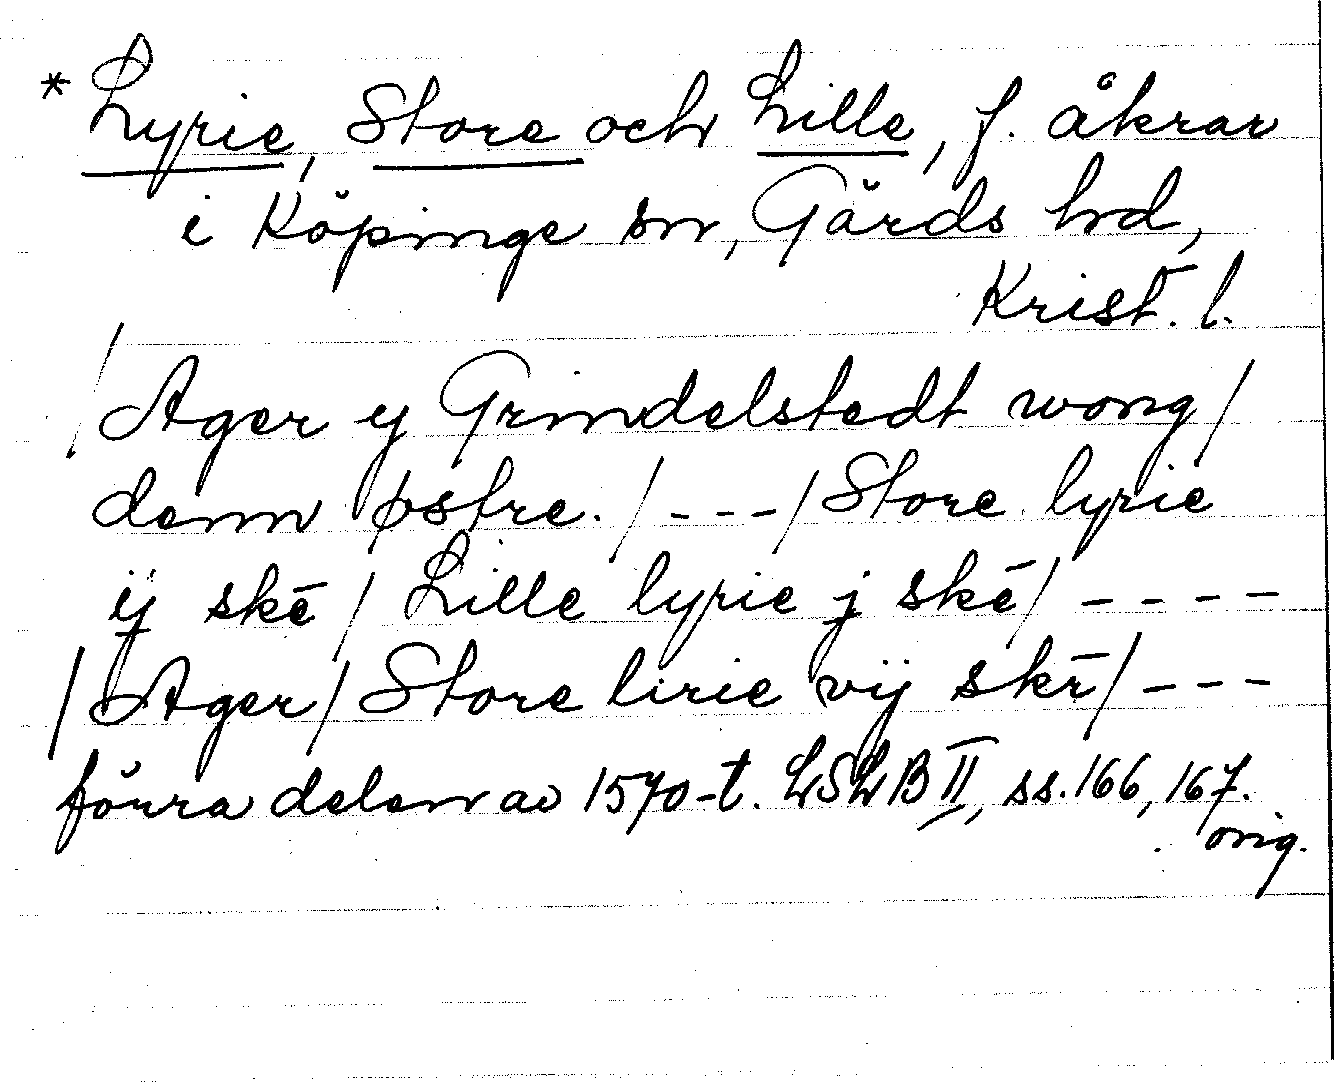 * Lyrie, Store och Lille, f. åkrar
i Köpinge sn, Gärds hd,
Krist. l.
/ Ager y Grindelstedt wong /
denn østre. / - - - / Store lyrie
ij skē / Lille lyrie j skē / - - - -
/ Ager / Store lirie vij skē / - - -
förra delen av 1570-t. LSLB II, ss. 166, 167.
orig.